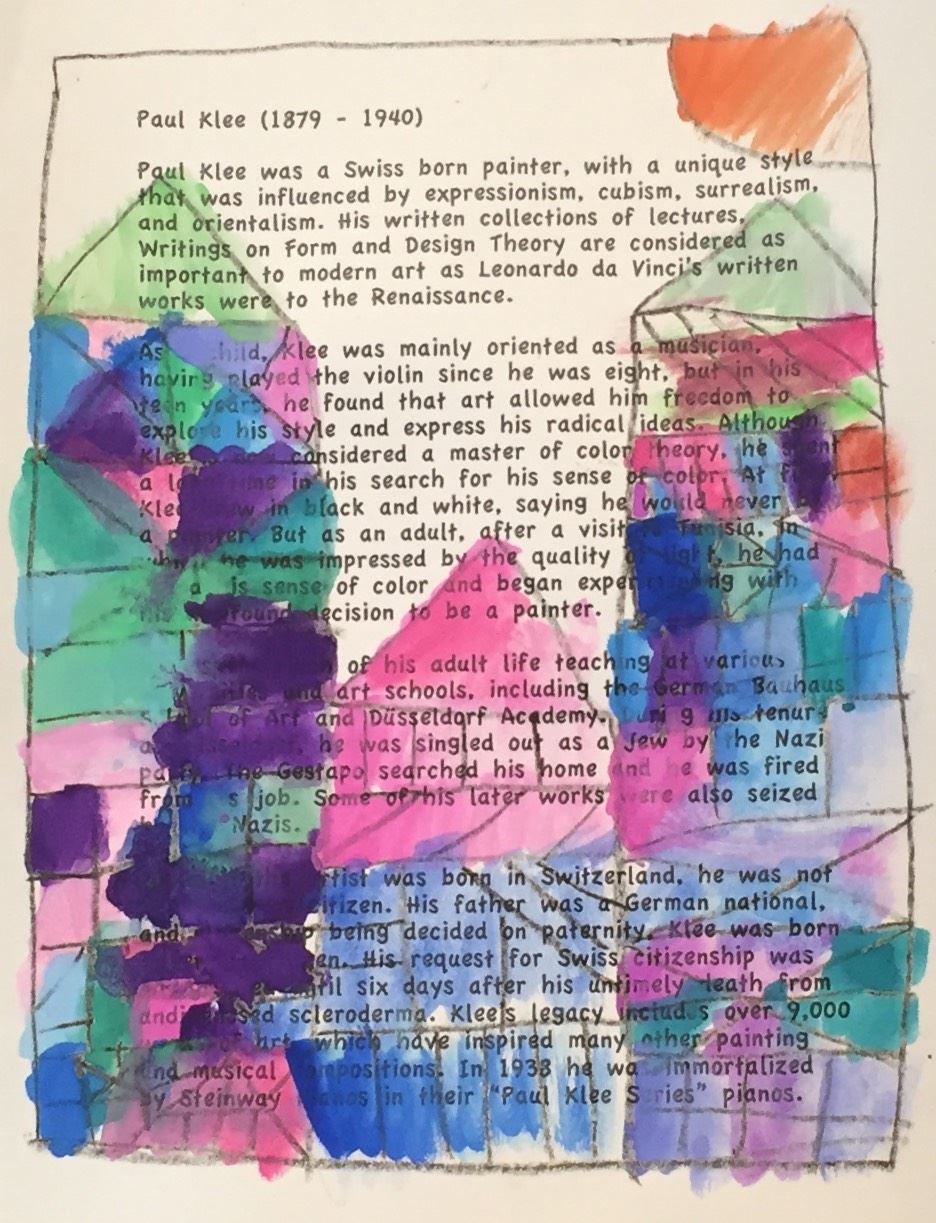 Paul Klee (1879 - 1940)
Paul Klee was a Swiss born painter, with a unique style
that was influenced by expressionism, cubism, surrealism,
and orientalism. His written collections of lectures,
Writings on Form and Design Theory are considered as
important to modern art as Leonardo da Vinci's written
works were to the Renaissance.
As child, Klee was mainly oriented as a musician,
having played the violin since he was eight, but in his
teen years, he found that art allowed him freedom to
explore his style and express his radical ideas. Although
Klee considered a master of color theory, he spent
a time in his search for his sense of color. At
in black and white, saying he would never
a But as an adult, after a visit Tunisia, in
he was impressed by the quality light, he had
sense of color and began with
decision to be a painter.
of his adult life teaching at various
and art schools, including the German Bauhaus
of Art and Düsseldorf Academy.
he was singled out as a Jew by the Nazi
party, the Gestapo searched his home and he was fired
from job. Some of his later works were also seized
Nazis.
was born in Switzerland, he was not
citizen. His father was a German national,
and being decided on paternity, Klee was born
His request for Swiss citizenship was
until six days after his untimely death from
scleroderma. Klee's legacy includes over 9,000
of art, which have inspired many other painting
and musical compositions. In 1938 he was immortalized
by Steinway in their "Paul Klee Series" pianos.